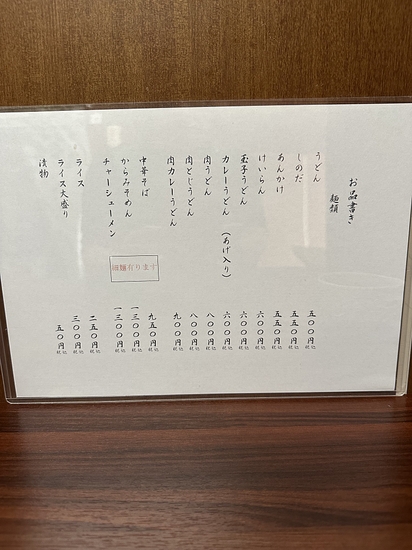 お品書き
麺類
うどん 五〇〇円税込
しのだ 五五〇円税込
あんかけ 五五〇円税込
けいらん 六〇〇円税込
玉子うどん 六〇〇円税込
カレーうどん(あげ入り) 六〇〇円税込
肉うどん 八〇〇円税込
肉とじうどん 八〇〇円税込
肉カレーうどん 九〇〇円税込
中華そば 九五〇円税込
からみそめん 一三〇〇円税込
チャーシューメン 一三〇〇円税込
細麺有ります
ライス 二五〇円税込
ライス大盛り 三〇〇円税込
漬物 五〇円税込